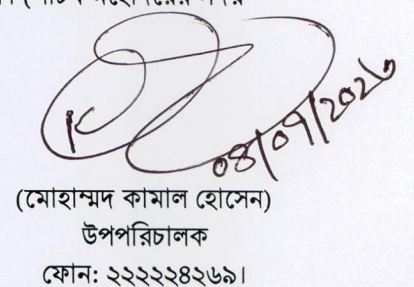 ০৪/০৭/২০২৩
(মোহাম্মদ কামাল হোসেন)
উপপরিচালক
ফোন: ২২২২২৪২৬৯।